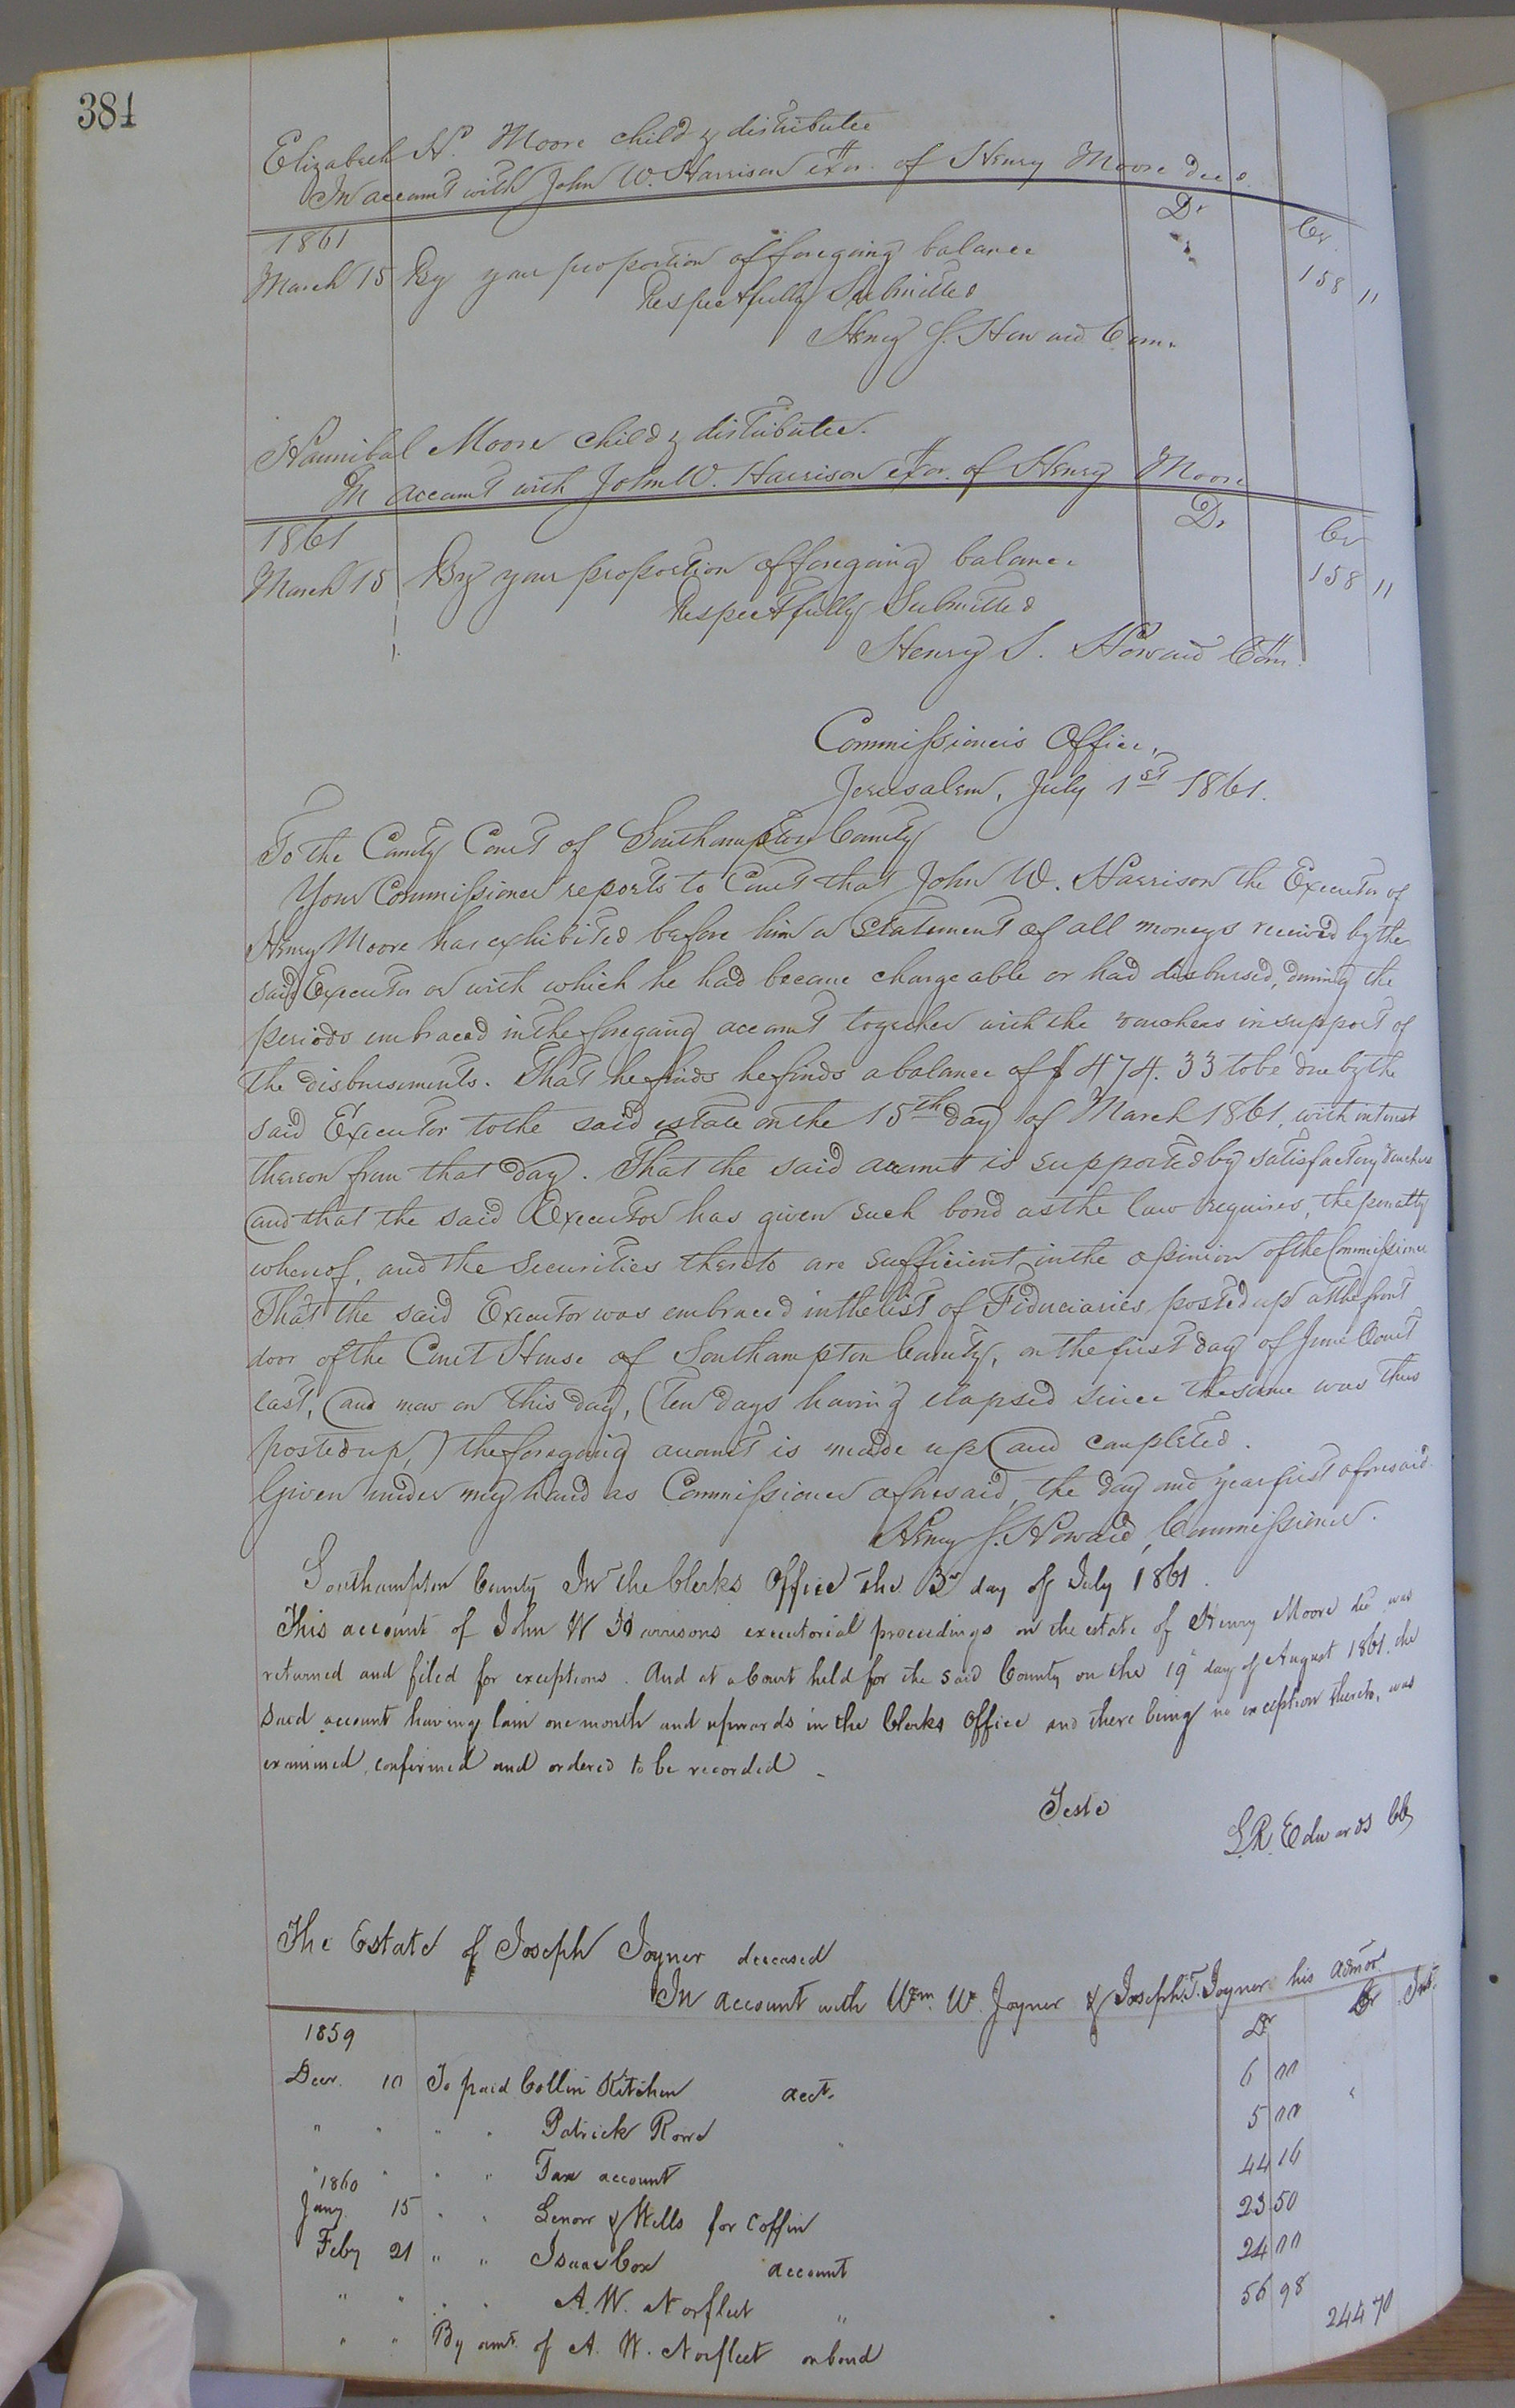 384
Elizabeth H. Moore child & distributee
In account with John W. Harrison exor. of Henry Moore decd.
Dr Cr
1861
March 15 By your proportion of foregoing balance 158 11
Respectfully Submitted
Henry S. Howard Com.
Hannibal Moore child & distributee.
In account with John W. Harrison exor. of Henry Moore
Dr Cr
1861
March 15 By your proportion of foregoing balance 158 11
Respectfully Submitted
Henry S. Howard Com.
Commissioner's Office,
Jerusalem, July 1st 1861.
To the County Court of Southampton County
Your Commissioner reports to Court that John W. Harrison the Executor of
Henry Moore has exhibited before him a Statement of all moneys received by the
said Executor or with which he had become chargeable or had disbursed, during the
periods embraced in the foregoing account together with the vouchers in support of
the disbursements. That he finds he finds a balance of $474.33 to be due by the
said Executor to the said estate on the 15th day of March 1861, with interest
thereon from that day. That the said account is supported by satisfactory vouchers
and that the said Executor has given such bond as the law requires, the penalty
whereof, and the Securities thereto are sufficient in the opinion of the Commissioner
That the said Executor was embraced in the list of Fiduciaries posted up at the front
door of the Court House of Southampton County, on the first day of June Court
last, and now on this day, (ten days having elapsed since the same was thus
posted up,) the foregoing account is made up and completed.
Given under my hand as Commissioner aforesaid, the day and year first aforesaid.
Henry S. Howard, Commissioner.
Southampton County In the Clerks Office the 3rd day of July 1861.
This account of John W Harrisons executorial proceedings on the estate of Henry Moore dec was
returned and filed for exceptions. And at a Court held for the said County on the 19th day of August 1861. the
said account having lain one month and upwards in the Clerks Office and there being no exception thereto, was
examined, confirmed and ordered to be recorded
Teste
L.R. Edwards Clk
The Estate of Joseph Joyner deceased
In account with Wm. W. Joyner & Joseph T. Joyner his admors
1859 Dr Cr Int.
Decr. 10 To paid Collin Kitchen acct. 6 00
" " " " Patrick Rowe " 5 00
" " " " Tax account 44 16
1860
Jany 15 " " & Wells for Coffin 23 50
Feby 21 " " Isaac Cox account 24 00
" " " " A. W. Norfleet " 56 98
" " By amt. of A. W. Norfleet on bond 244 70